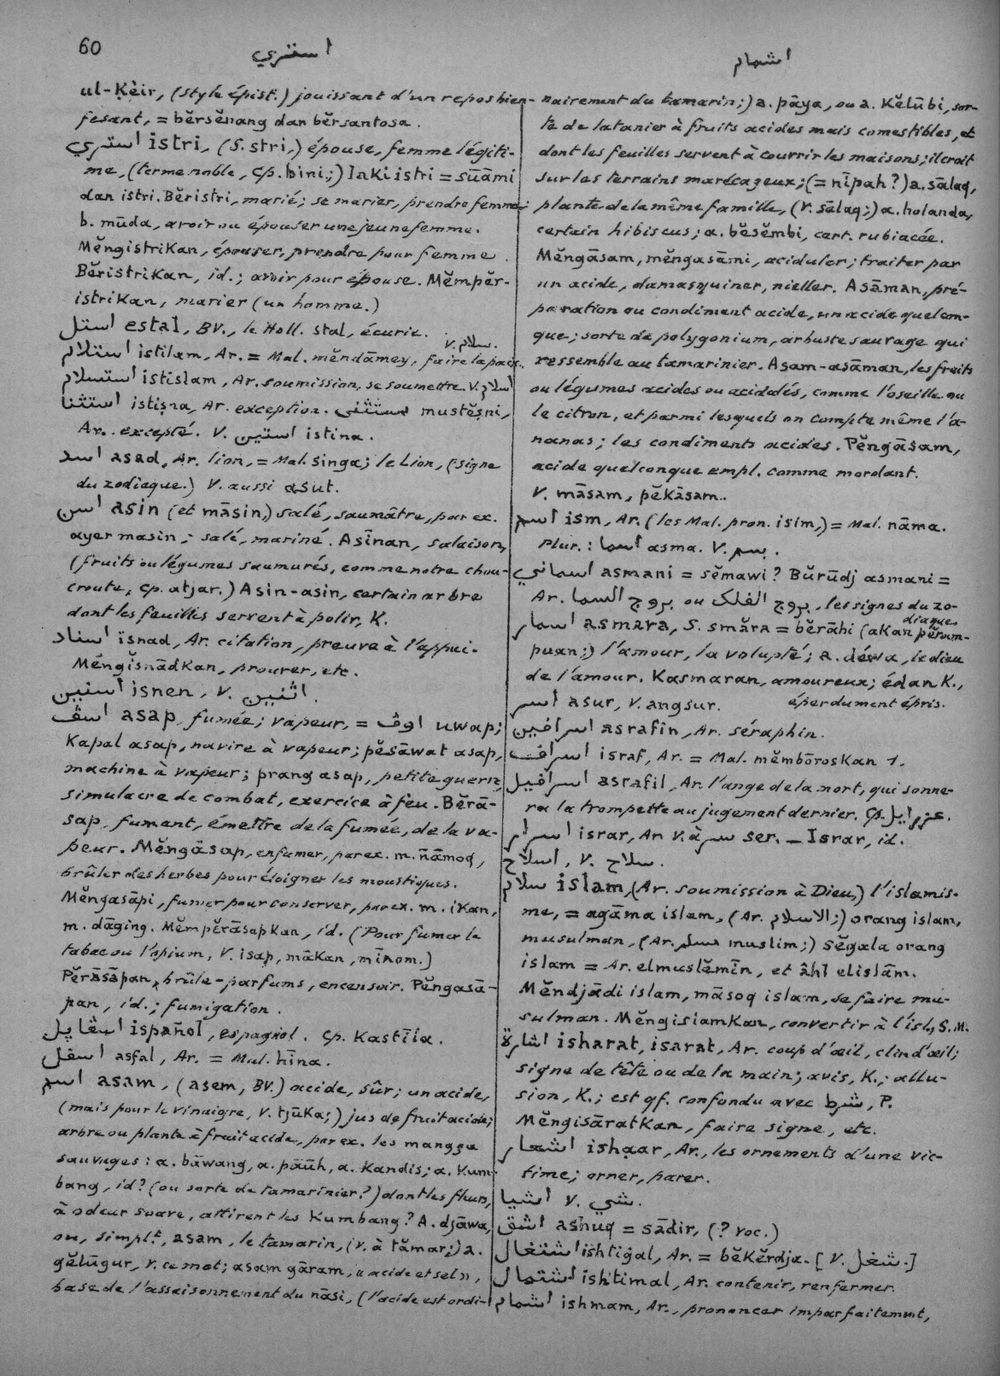 60
استري
اشمام
ul-Ḳèir, (style épist.) jouissant d'un repos bien-
fesant, = bĕrsĕnang dan bĕrsantosa.
استري istri, (S. stri,) épouse, femme légiti-
me, (terme noble, cp. bini;) laki istri = sūāmi
dan istri. Bĕristri, marié; se marier, prendre femme;
b. mūda, avoir ou épouser une jeune femme.
Mĕngistrikan, épouser, prendre pour femme.
Bĕristrikan, id.; avoir pour épouse. Mĕmpĕr-
istrikan, marier (un homme.)
استل estal, BV., le Holl. stal, écurie.
استلام istilam, Ar. = Mal. mĕndāmey, faire la paix. V. سلام.
استسلام istislam, Ar. soumission, se soumettre. V. اسلام
استثنا istiṣna, Ar. exception. مستثنى mustĕṣni,
Ar. excepté. V. استين istina.
اسد asad, Ar. lion, = Mal. singa; le Lion, (signe
du zodiaque.) V. aussi asut.
اسن asin (et māsin,) salé, saumâtre, par ex.
ayer masin; salé, mariné. Asīnan, salaison,
(fruits ou légumes saumurés, comme notre chou-
croute, cp. atjar.) Asin-asin, certain arbre
dont les feuilles servent à polir, K.
اسناد isnad, Ar. citation, preuve à l'appui.
Mĕngisnādkan, prouver, etc.
اسنين isnen, V. اثنين.
اسڤ asap, fumée; vapeur, = اوڤ uwap;
Kapal asap, navire à vapeur; pĕsāwat asap,
machine à vapeur; prang asap, petite guerre,
simulacre de combat, exercice à feu. Bĕrā-
sap, fumant, émettre de la fumée, de la va-
peur. Mĕngāsap, enfumer, par ex. m. ñāmoq,
brûler des herbes pour éloigner les moustiques.
Mĕngasāpi, fumer pour conserver, par ex. m. ikan,
m. dāging. Mĕmpĕrāsapkan, id. (Pour fumer le
tabac ou l'opium, V. isap, mākan, mīnom.)
Pĕrāsāpan, brûle-parfums, encensoir. Pĕngasā-
pan, id.; fumigation.
اسڤاپل ispañol, espagnol. Cp. Kastīla.
اسفل asfal, Ar. = Mal. hīna.
اسم asam, (asem, BV.) acide, sûr; un acide,
(mais pour le vinaigre, V. tjūka;) jus de fruit acide;
arbre ou plante à fruit acide, par ex. les mangga
sauvages: a. bāwang, a. pāūh, a. Kandis; a. Kum-
bang, id? (ou sorte de tamarinier?) dont les fleurs,
à odeur suave, attirent les Kumbang? A. djāwa,
ou, simplt, asam, le tamarin, (V. à tămar;) a.
gĕlūgur, V. ce mot; asam gāram, « acide et sel »,
base de l'assaisonnement du nāsi, (l'acide est ordi-
nairement du tamarin;) a. pāya, ou a. Kĕlūbi, sor-
te de latanier à fruits acides mais comestibles, et
dont les feuilles servent à couvrir les maisons; il croît
sur les terrains marécageux; (= nīpah?) a. sālaq,
plante de la même famille, (V. sālaq;) a. holanda,
certain hibiscus; a. bĕsĕmbi, cert. rubiacée.
Mĕngāsam, mĕngasāmi, aciduler; traiter par
un acide, damasquiner, nieller. Asāman, pré-
paration ou condiment acide, un acide quelcon-
que; sorte de polygonium, arbuste sauvage qui
ressemble au tamarinier. Asam-asāman, les fruits
ou légumes acides ou acidulés, comme l'oseille ou
le citron, et parmi lesquels on compte même l'a-
nanas; les condiments acides. Pĕngāsam,
acide quelconque empl. comme mordant.
V. māsam, pĕkāsam..
اسم ism, Ar. (les Mal. pron. islm,) = Mal. nāma.
Plur.: اسما asma. V. بسم.
اسماني asmani = sĕmawi? Būrūdj asmani =
Ar. بروج السما ou بروج الفلك, les signes du zo-
diaque
اسمار asmara, S. smăra = bĕrāhi (akan pĕram-
puan;) l'amour, la volupté; a. déwa, le dieu
de l'amour. Kasmaran, amoureux; édan K.,
éperdument épris.
اسر asur, V. angsur.
اسرافين asrafin, Ar. séraphin.
اسراف israf, Ar. = Mal. mĕmbōroskan 1.
اسرافيل asrafil, Ar. l'ange de la mort, qui sonne-
ra la trompette au jugement dernier. Cp. عزرايل.
اسرار israr, Ar. V. à سر ser. — Israr, id.
اسلاح, V. سلاح.
سلام islam, (Ar. soumission à Dieu,) l'islamis-
me, = agāma islam, (Ar. الاسلام;) orang islam,
musulman, (Ar. مسلم muslim;) sĕgala orang
islam = Ar. elmuslĕmīn, et âhl elislām.
Mĕndjādi islam, māsoq islam, se faire mu-
sulman. Mĕngislamkan, convertir à l'isl., S. M.
اشارة isharat, isarat, Ar. coup d'œil, clin d'œil;
signe de tête ou de la main; avis, K.; allu-
sion, K.; est qf. confondu avec شرط, P.
Mĕngisāratkan, faire signe, etc.
اشعار ishqar, Ar., les ornements d'une vic-
time; orner, parer.
اشيا V. شي.
اشق ashuq = sādir, (? voc.)
اشتغال ishtiġal, Ar. = bĕkĕrdja. [V. شغل.]
اشتمال ishtimal, Ar. contenir, renfermer.
اشمام ishmam, Ar., prononcer imparfaitement,